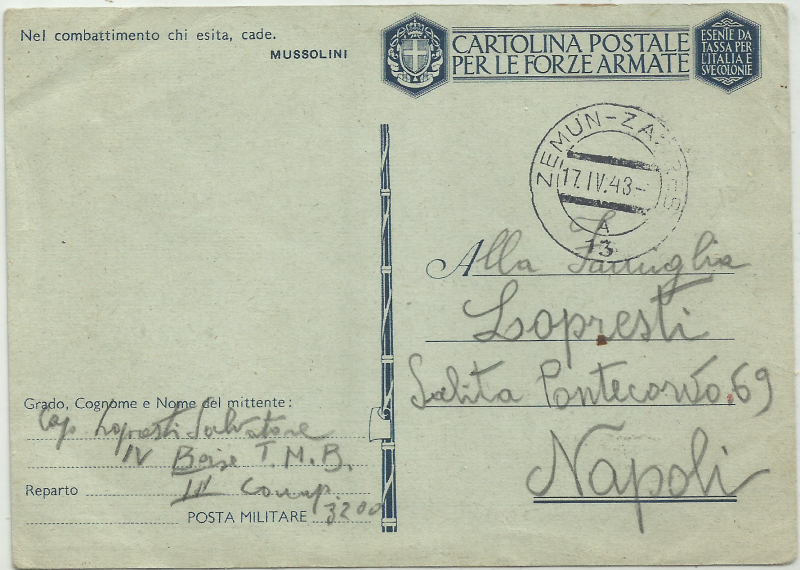 Nel combattimento chi esita, cade.
MUSSOLINI
CARTOLINA POSTALE
PER LE FORZE ARMATE
ESENTE DA
TASSA PER
L'ITALIA E
SVE COLONIE
ZEMUN-ZA
17. IV. 43-
A
13
Alla Famiglia
Lopresti
Salita Pontecorvo, 69
Napoli
Grado, Cognome e Nome del mittente:
Cap. Lopresti Salvatore
IV T. M. B.
Reparto III Comp.
POSTA MILITARE 3200